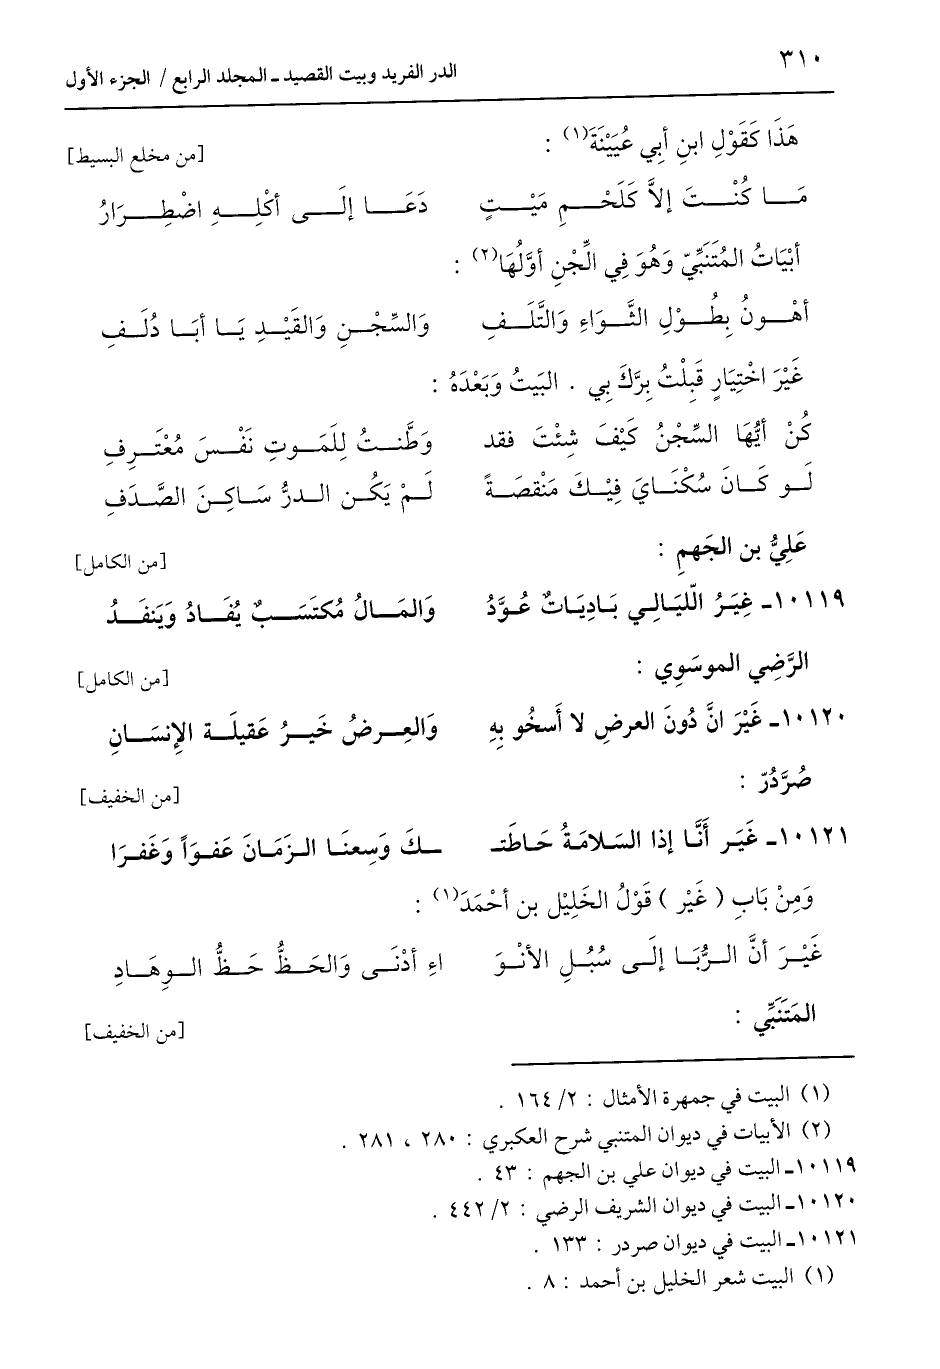 ٣١٠
الدر الفريد وبيت القصيد ـ المجلد الرابع / الجزء الأول
هَذَا كَقَوْلِ ابنِ أبِي عُيَيْنَةَ(١) :
[من مخلع البسيط]
مَـا كُنْـتَ إلاَّ كَلَحْـمِ مَيْـتٍ دَعَـا إلَـى أكْلِـهِ اضْطِـرَارُ
أبْيَاتُ المُتَنَبِّيّ وَهُوَ فِي الِّجْنِ أوَّلُهَا(٢) :
أهْـونُ بِطُـوْلِ الثَّـوَاءِ وَالتَّلَـفِ وَالسِّجْـنِ وَالقَيْـدِ يَـا أبَـا دُلَـفِ
غَيْرَ اخْتِيَارٍ قَبِلْتُ بِرَّكَ بِي . البَيتُ وَبَعْدَهُ :
كُنْ أيُّهَا السِّجْنُ كَيْفَ شِئْتَ فقد وَطَّنتُ لِلمَـوتِ نَفْـسَ مُعْتَـرِفِ
لَـو كَـانَ سُكْنَـايَ فِيْـكَ مَنْقصَـةً لَـمْ يَكُـن الـدرُّ سَـاكِـنَ الصَّـدَفِ
عَلِيُّ بن الجَهمِ :
[من الكامل]
١٠١١٩ـ غِيَرُ اللّيَالِي بَـادِيَـاتٌ عُـوَّدُ وَالمَـالُ مُكتَسَـبٌ يُفَـادُ وَيَنفَـدُ
الرَّضِي الموسَوِي :
[من الكامل]
١٠١٢٠ـ غَيْرَ انَّ دُونَ العرضِ لا أَسخُو بِهِ وَالعِـرضُ خَيـرُ عَقيلَـة الإِنسَـانِ
صُرَّدُرّ :
[من الخفيف]
١٠١٢١ـ غَيَر أَنَّا إذا السَـلامَةُ حَاطَتـ ـكَ وَسِعنَـا الـزَمَـانَ عَفـوَاً وَغَفـرَا
وَمِنْ بَابِ ( غَيْرِ ) قَوْلُ الخَلِيْلِ بن أحْمَدَ(١) :
غَيْـرَ أنَّ الـرُّبَـا إلَـى سُبُـلِ الأنْـوَ اءِ أدْنَـى وَالحَـظُّ حَـظُّ الـوِهَـادِ
المَتَنَبِّي :
[من الخفيف]
(١) البيت في جمهرة الأمثال : ٢/ ١٦٤ .
(٢) الأبيات في ديوان المتنبي شرح العكبري : ٢٨٠ ، ٢٨١ .
١٠١١٩ـ البيت في ديوان علي بن الجهم : ٤٣ .
١٠١٢٠ـ البيت في ديوان الشريف الرضي : ٢/ ٤٤٢ .
١٠١٢١ـ البيت في ديوان صردر : ١٣٣ .
(١) البيت شعر الخليل بن أحمد : ٨ .